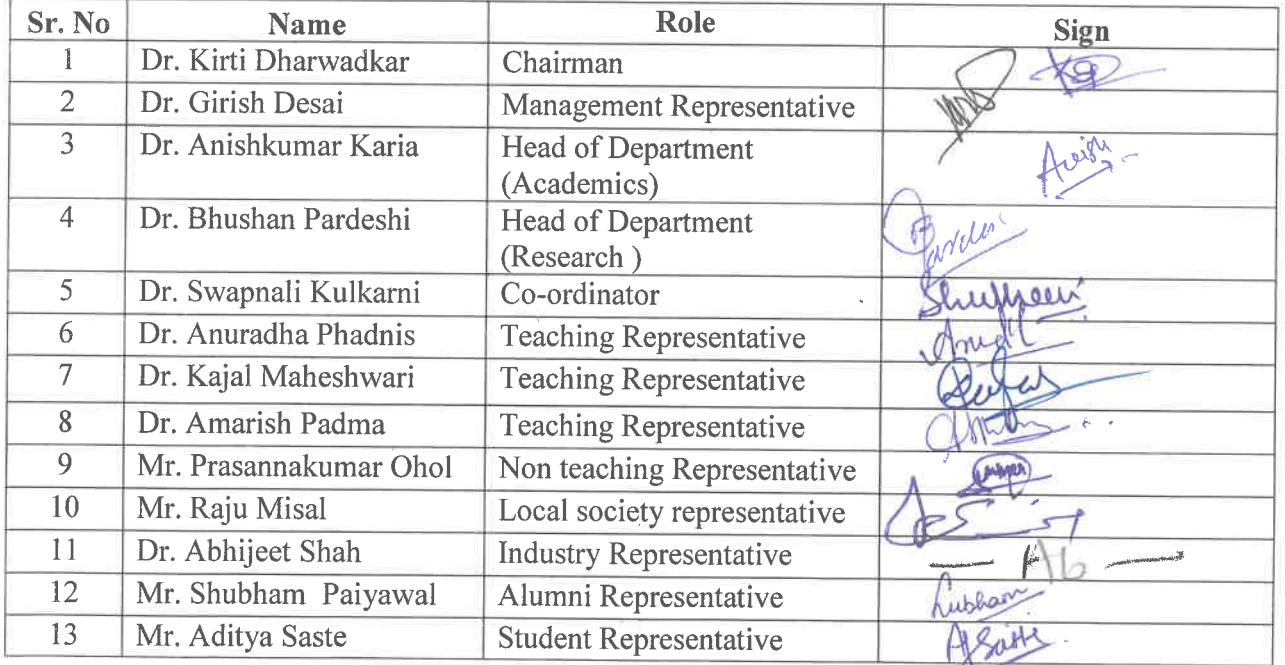 Sr. No Name Role Sign
1 Dr. Kirti Dharwadkar Chairman
2 Dr. Girish Desai Management Representative
3 Dr. Anishkumar Karia Head of Department
(Academics) Anish
4 Dr. Bhushan Pardeshi Head of Department
(Research )
5 Dr. Swapnali Kulkarni Co-ordinator
6 Dr. Anuradha Phadnis Teaching Representative
7 Dr. Kajal Maheshwari Teaching Representative
8 Dr. Amarish Padma Teaching Representative
9 Mr. Prasannakumar Ohol Non teaching Representative
10 Mr. Raju Misal Local society representative
11 Dr. Abhijeet Shah Industry Representative
12 Mr. Shubham Paiyawal Alumni Representative
13 Mr. Aditya Saste Student Representative